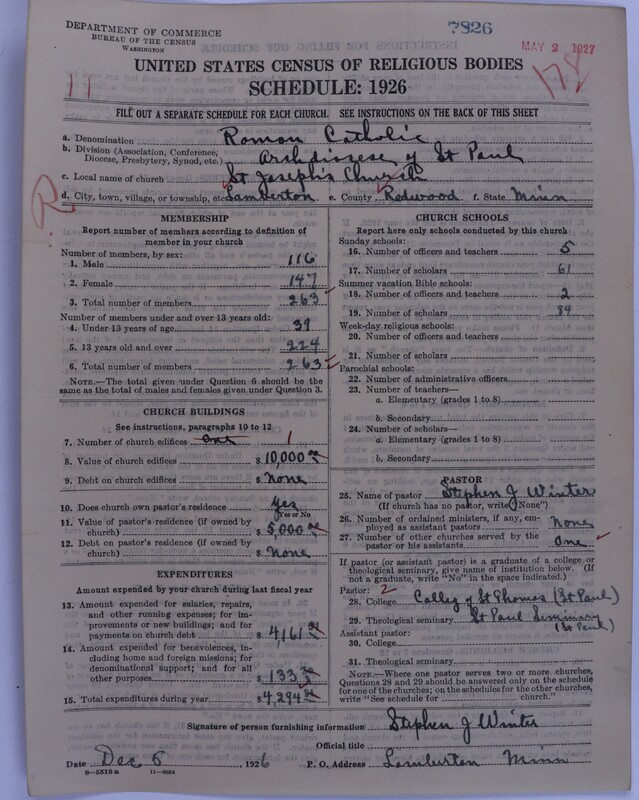 DEPARTMENT OF COMMERCE
BUREAU OF THE CENSUS
WASHINGTON
7826
MAY 2 1927
11
178
UNITED STATES CENSUS OF RELIGIOUS BODIES
SCHEDULE: 1926
FILL OUT A SEPARATE SCHEDULE FOR EACH CHURCH. SEE INSTRUCTIONS ON THE BACK OF THIS SHEET
a. Denomination Roman Catholic
b. Division (Association, Conference, Diocese, Presbytery, Synod, etc.) Archdiocese of St Paul
c. Local name of church St Joseph's Church
d. City, town, village, or township, etc. Lamberton e. County Redwood f. State Minn
R
MEMBERSHIP
Report number of members according to definition of
member in your church
Number of members, by sex:
1. Male 116
2. Female 147
3. Total number of members 263
Number of members under and over 13 years old:
4. Under 13 years of age 39
5. 13 years old and over 224
6. Total number of members 263
NOTE.—The total given under Question 6 should be the
same as the total of males and females given under Question 3.
CHURCH BUILDINGS
See instructions, paragraphs 10 to 12
7. Number of church edifices One 1
8. Value of church edifices $ 10,000 00
9. Debt on church edifices $ None
10. Does church own pastor's residence? Yes
Yes or No
11. Value of pastor's residence (if owned by
church) $ 5,000 00
12. Debt on pastor's residence (if owned by
church) $ None
EXPENDITURES
Amount expended by your church during last fiscal year
13. Amount expended for salaries, repairs,
and other running expenses; for im-
provements or new buildings; and for
payments on church debt $ 4,161
14. Amount expended for benevolences, in-
cluding home and foreign missions; for
denominational support; and for all
other purposes $ 133
15. Total expenditures during year $ 4,294
CHURCH SCHOOLS
Report here only schools conducted by this church
Sunday schools:
16. Number of officers and teachers 5
17. Number of scholars 61
Summer vacation Bible schools:
18. Number of officers and teachers 2
19. Number of scholars 84
Week-day religious schools:
20. Number of officers and teachers
21. Number of scholars
Parochial schools:
22. Number of administrative officers
23. Number of teachers—
a. Elementary (grades 1 to 8)
b. Secondary
24. Number of scholars—
a. Elementary (grades 1 to 8)
b. Secondary
PASTOR
25. Name of pastor Stephen J Winter
(If church has no pastor, write "None")
26. Number of ordained ministers, if any, em-
ployed as assistant pastors None
27. Number of other churches served by the
pastor or his assistants One
If pastor (or assistant pastor) is a graduate of a college or
theological seminary, give name of institution below. (If
not a graduate, write "No" in the space indicated.)
Pastor: 2
28. College College of St Thomas (St Paul)
29. Theological seminary St Paul Seminary
(St Paul)
Assistant pastor:
30. College
31. Theological seminary
NOTE.—Where one pastor serves two or more churches,
Questions 28 and 29 should be answered only on the schedule
for one of the churches; on the schedules for the other churches,
write "See schedule for church."
Signature of person furnishing information Stephen J Winter
Official title
Date Dec 6, 1926 P. O. Address Lamberton Minn
8—5318 a 11—9024